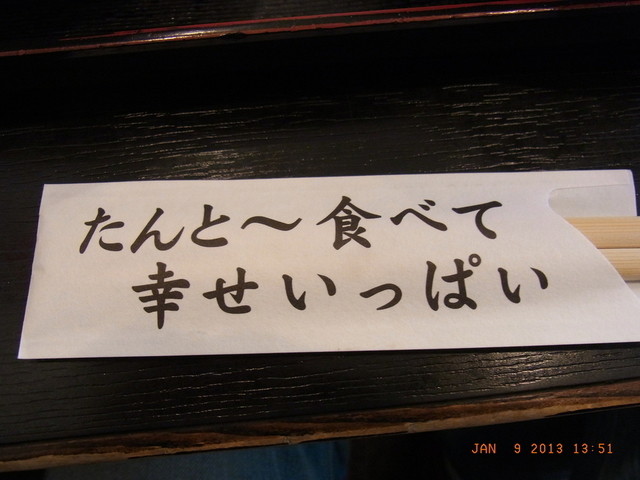 たんと〜食べて
幸せいっぱい
JAN 9 2013 13:51